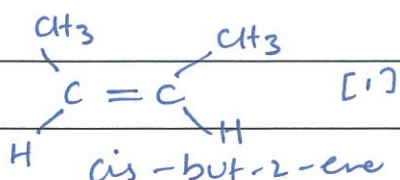 CH3 CH3
C = C [1]
H H
cis-but-2-ene